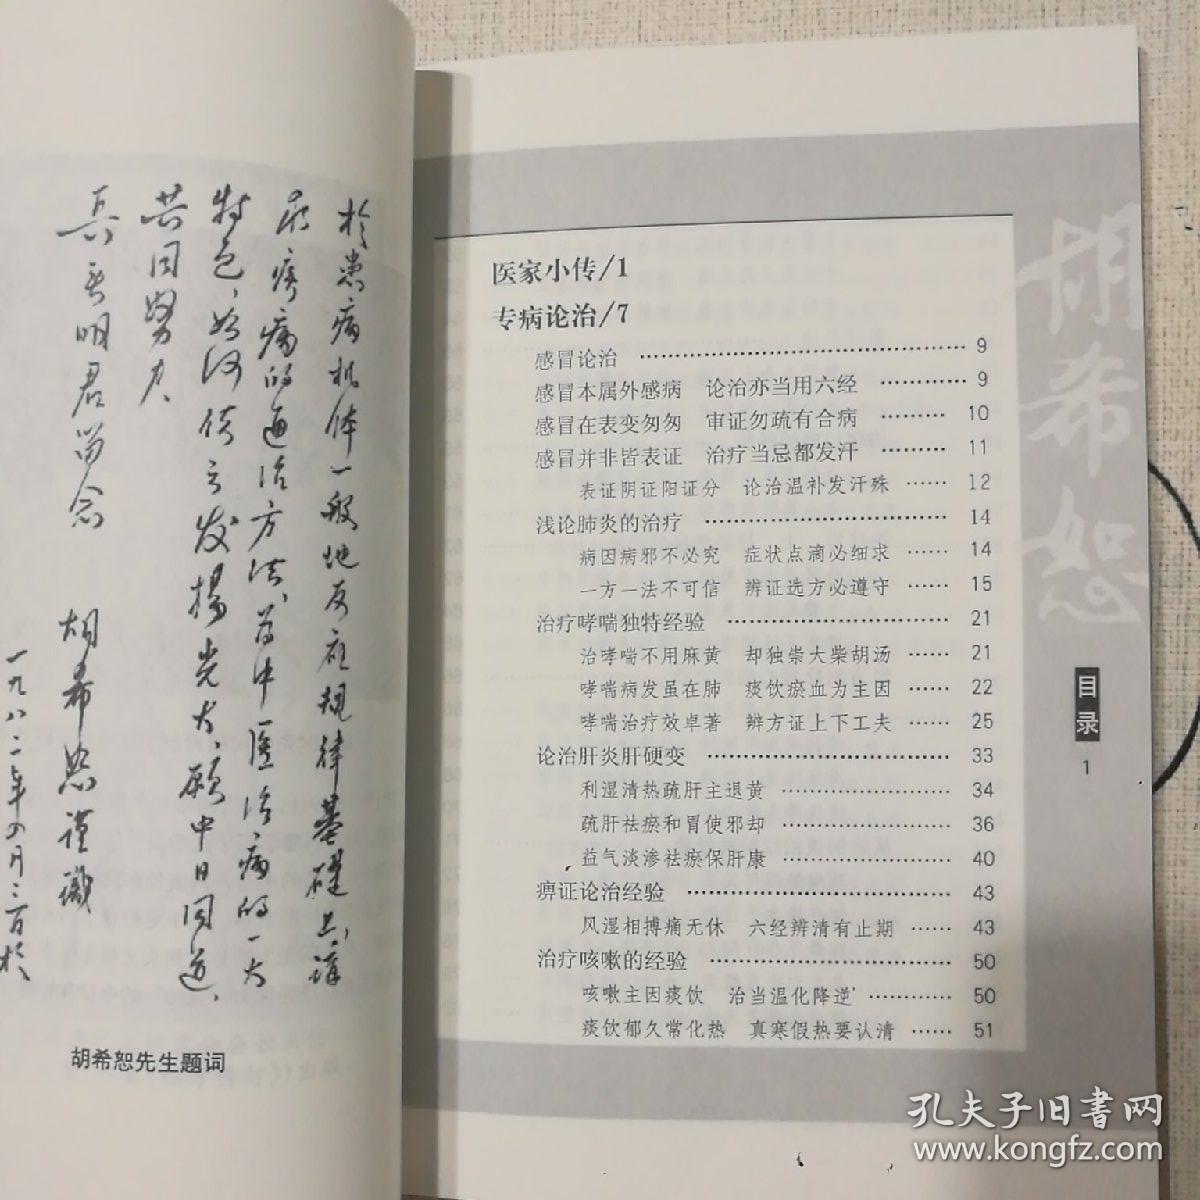 於患病机体一般地反应规律基础上，讲
求疾病的通治方法，为中医治病的一大
特色，如何使之发扬光大，愿中日同道，
共同努力
真言明君留念
胡希恕谨识
一九八二年四月二百於
胡希恕先生题词
胡希恕
目录
1
医家小传/1
专病论治/7
感冒论治 ………………………………… 9
感冒本属外感病 论治亦当用六经 ………… 9
感冒在表变匆匆 审证勿疏有合病 ……… 10
感冒并非皆表证 治疗当忌都发汗 ……… 11
表证阴证阳证分 论治温补发汗殊 …… 12
浅论肺炎的治疗 ………………………… 14
病因病邪不必究 症状点滴必细求 …… 14
一方一法不可信 辨证选方必遵守 …… 15
治疗哮喘独特经验 ……………………… 21
治哮喘不用麻黄 却独崇大柴胡汤 …… 21
哮喘病发虽在肺 痰饮瘀血为主因 …… 22
哮喘治疗效卓著 辨方证上下工夫 …… 25
论治肝炎肝硬变 ………………………… 33
利湿清热疏肝主退黄 ………………… 34
疏肝祛瘀和胃使邪却 ………………… 36
益气淡渗祛瘀保肝康 ………………… 40
痹证论治经验 …………………………… 43
风湿相搏痛无休 六经辨清有止期 …… 43
治疗咳嗽的经验 ………………………… 50
咳嗽主因痰饮 治当温化降逆 ………… 50
痰饮郁久常化热 真寒假热要认清 …… 51
孔夫子旧书网
www.kongfz.com